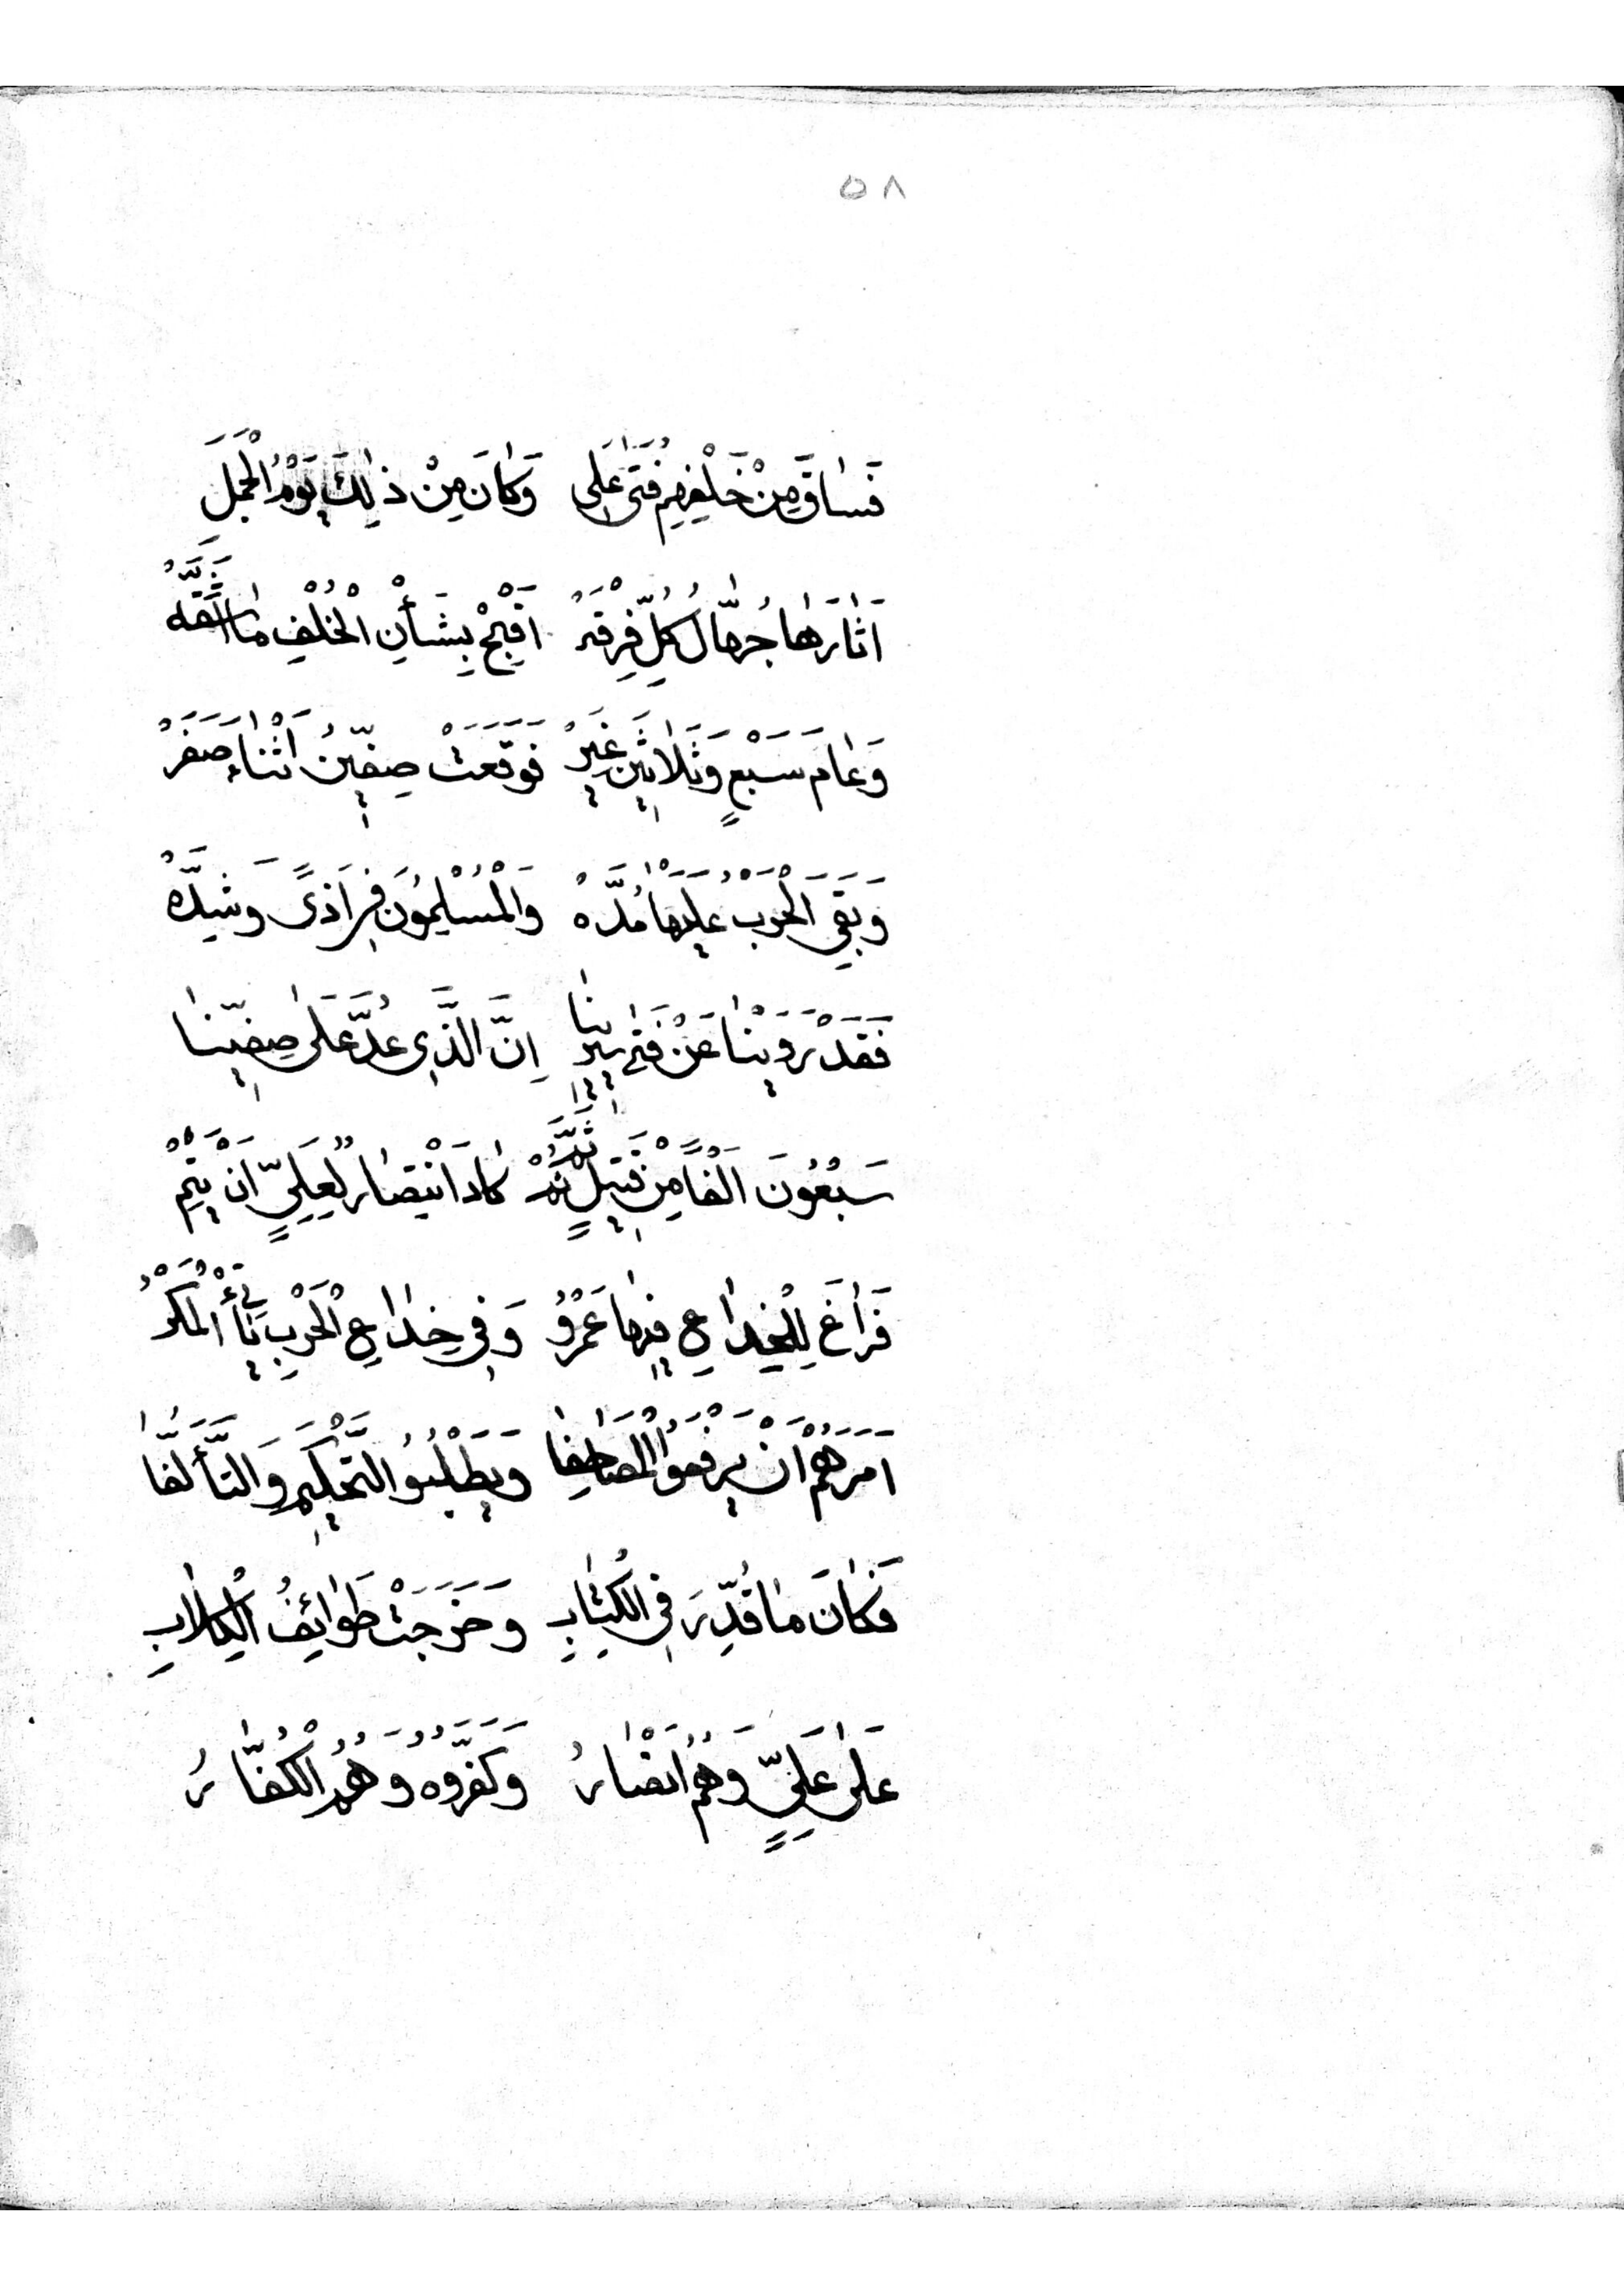 ٥٨
فَسَاقَ مِنْ خَلْفِهِم فَتَىٰ عَلِي وَكَانَ مِنْ ذٰلِكَ يَوْمُ الْجَمَلِ
اَثَارَهَا جُهَّالُ كُلِّ فِرْقَهْ اَقْبِحْ بِشَأْنِ الْخُلْفِ مَا
وَعَامَ سَبْعٍ وَثَلَاثِينَ غَبَرْ فَوَقَعَتْ صِفِّينُ اَثْنَاءَ صَفَرْ
وَبَقِيَ الْحَرْبُ عَلَيْهَا مُدَّهْ وَالْمُسْلِمُونَ فِي اَذًى وَشِدَّهْ
فَقَدْ رَوَيْنَا عَنْ فَتَى سِيرِينَا اِنَّ الَّذِي عُدَّ عَلَى صِفِّينَا
سَبْعُونَ اَلْفًا مِنْ قَتِيلٍ ثَمَّهْ كَادَ انْتِصَارٌ لِعَلِيٍّ اَنْ يَتِمْ
فَرَاغَ لِلْخِدَاعِ فِيهَا عَمْرُو وَفِي خِدَاعِ الْحَرْبِ يَأْتِي الْمَكْرُ
اَمَرَهُمْ اَنْ يَرْفَعُوا الْمَصَاحِفَا وَيَطْلُبُوا التَّحْكِيمَ وَالتَّأَلُّفَا
فَكَانَ مَا قُدِّرَ فِي الْكِتَابِ وَخَرَجَتْ طَوَائِفُ الْكِلَابِ
عَلَى عَلِيٍّ وَهُمُ اَنْصَارُ وَكَفَّرُوهُ وَهُمُ الْكُفَّارُ